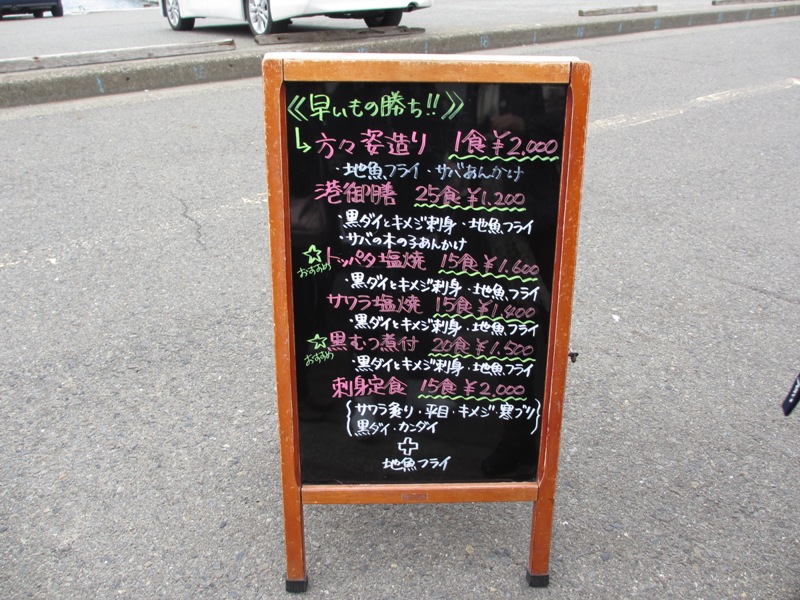 ≪早いもの勝ち!!≫
↳方々姿造り 1食¥2,000
・地魚フライ・サバあんかけ
港御膳 25食¥1,200
・黒ダイとキメジ刺身・地魚フライ
・サバの木の子あんかけ
☆おすすめ トッパタ塩焼 15食¥1,600
・黒ダイとキメジ刺身・地魚フライ
サワラ塩焼 15食¥1,400
・黒ダイとキメジ刺身・地魚フライ
☆おすすめ 黒むつ煮付 20食¥1,500
・黒ダイとキメジ刺身・地魚フライ
刺身定食 15食¥2,000
{サワラ炙り・平目・キメジ・寒ブリ
黒ダイ・カンダイ}
+
地魚フライ